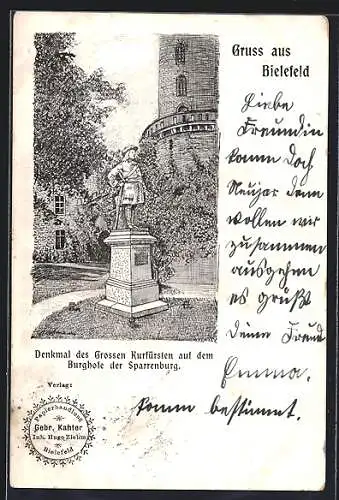 Gruss aus
Bielefeld
Liebe
Freundin
komm doch
Neujar dann
wollen wir
zusammen
ausgehen
es grüßt
deine Freud
Emma.
komm bestimmt.
Denkmal des Grossen Kurfürsten auf dem
Burghofe der Sparrenburg.
Verlag:
Papierhandlung
Gebr. Kahler
Inh. Hugo
Bielefeld